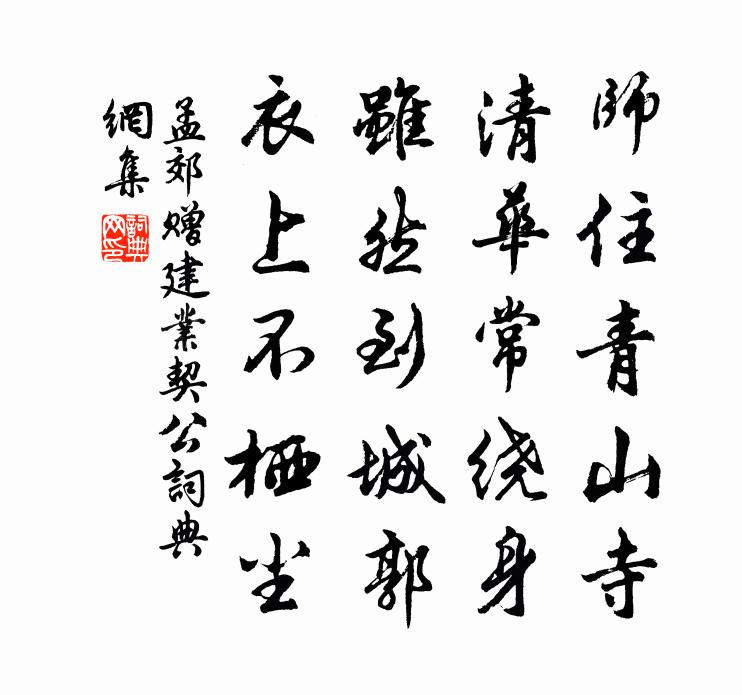 師住青山寺
清華常绕身
雖然到城郭
衣上不栖尘
孟郊赠建業契公詞典
網集
詞典
网印